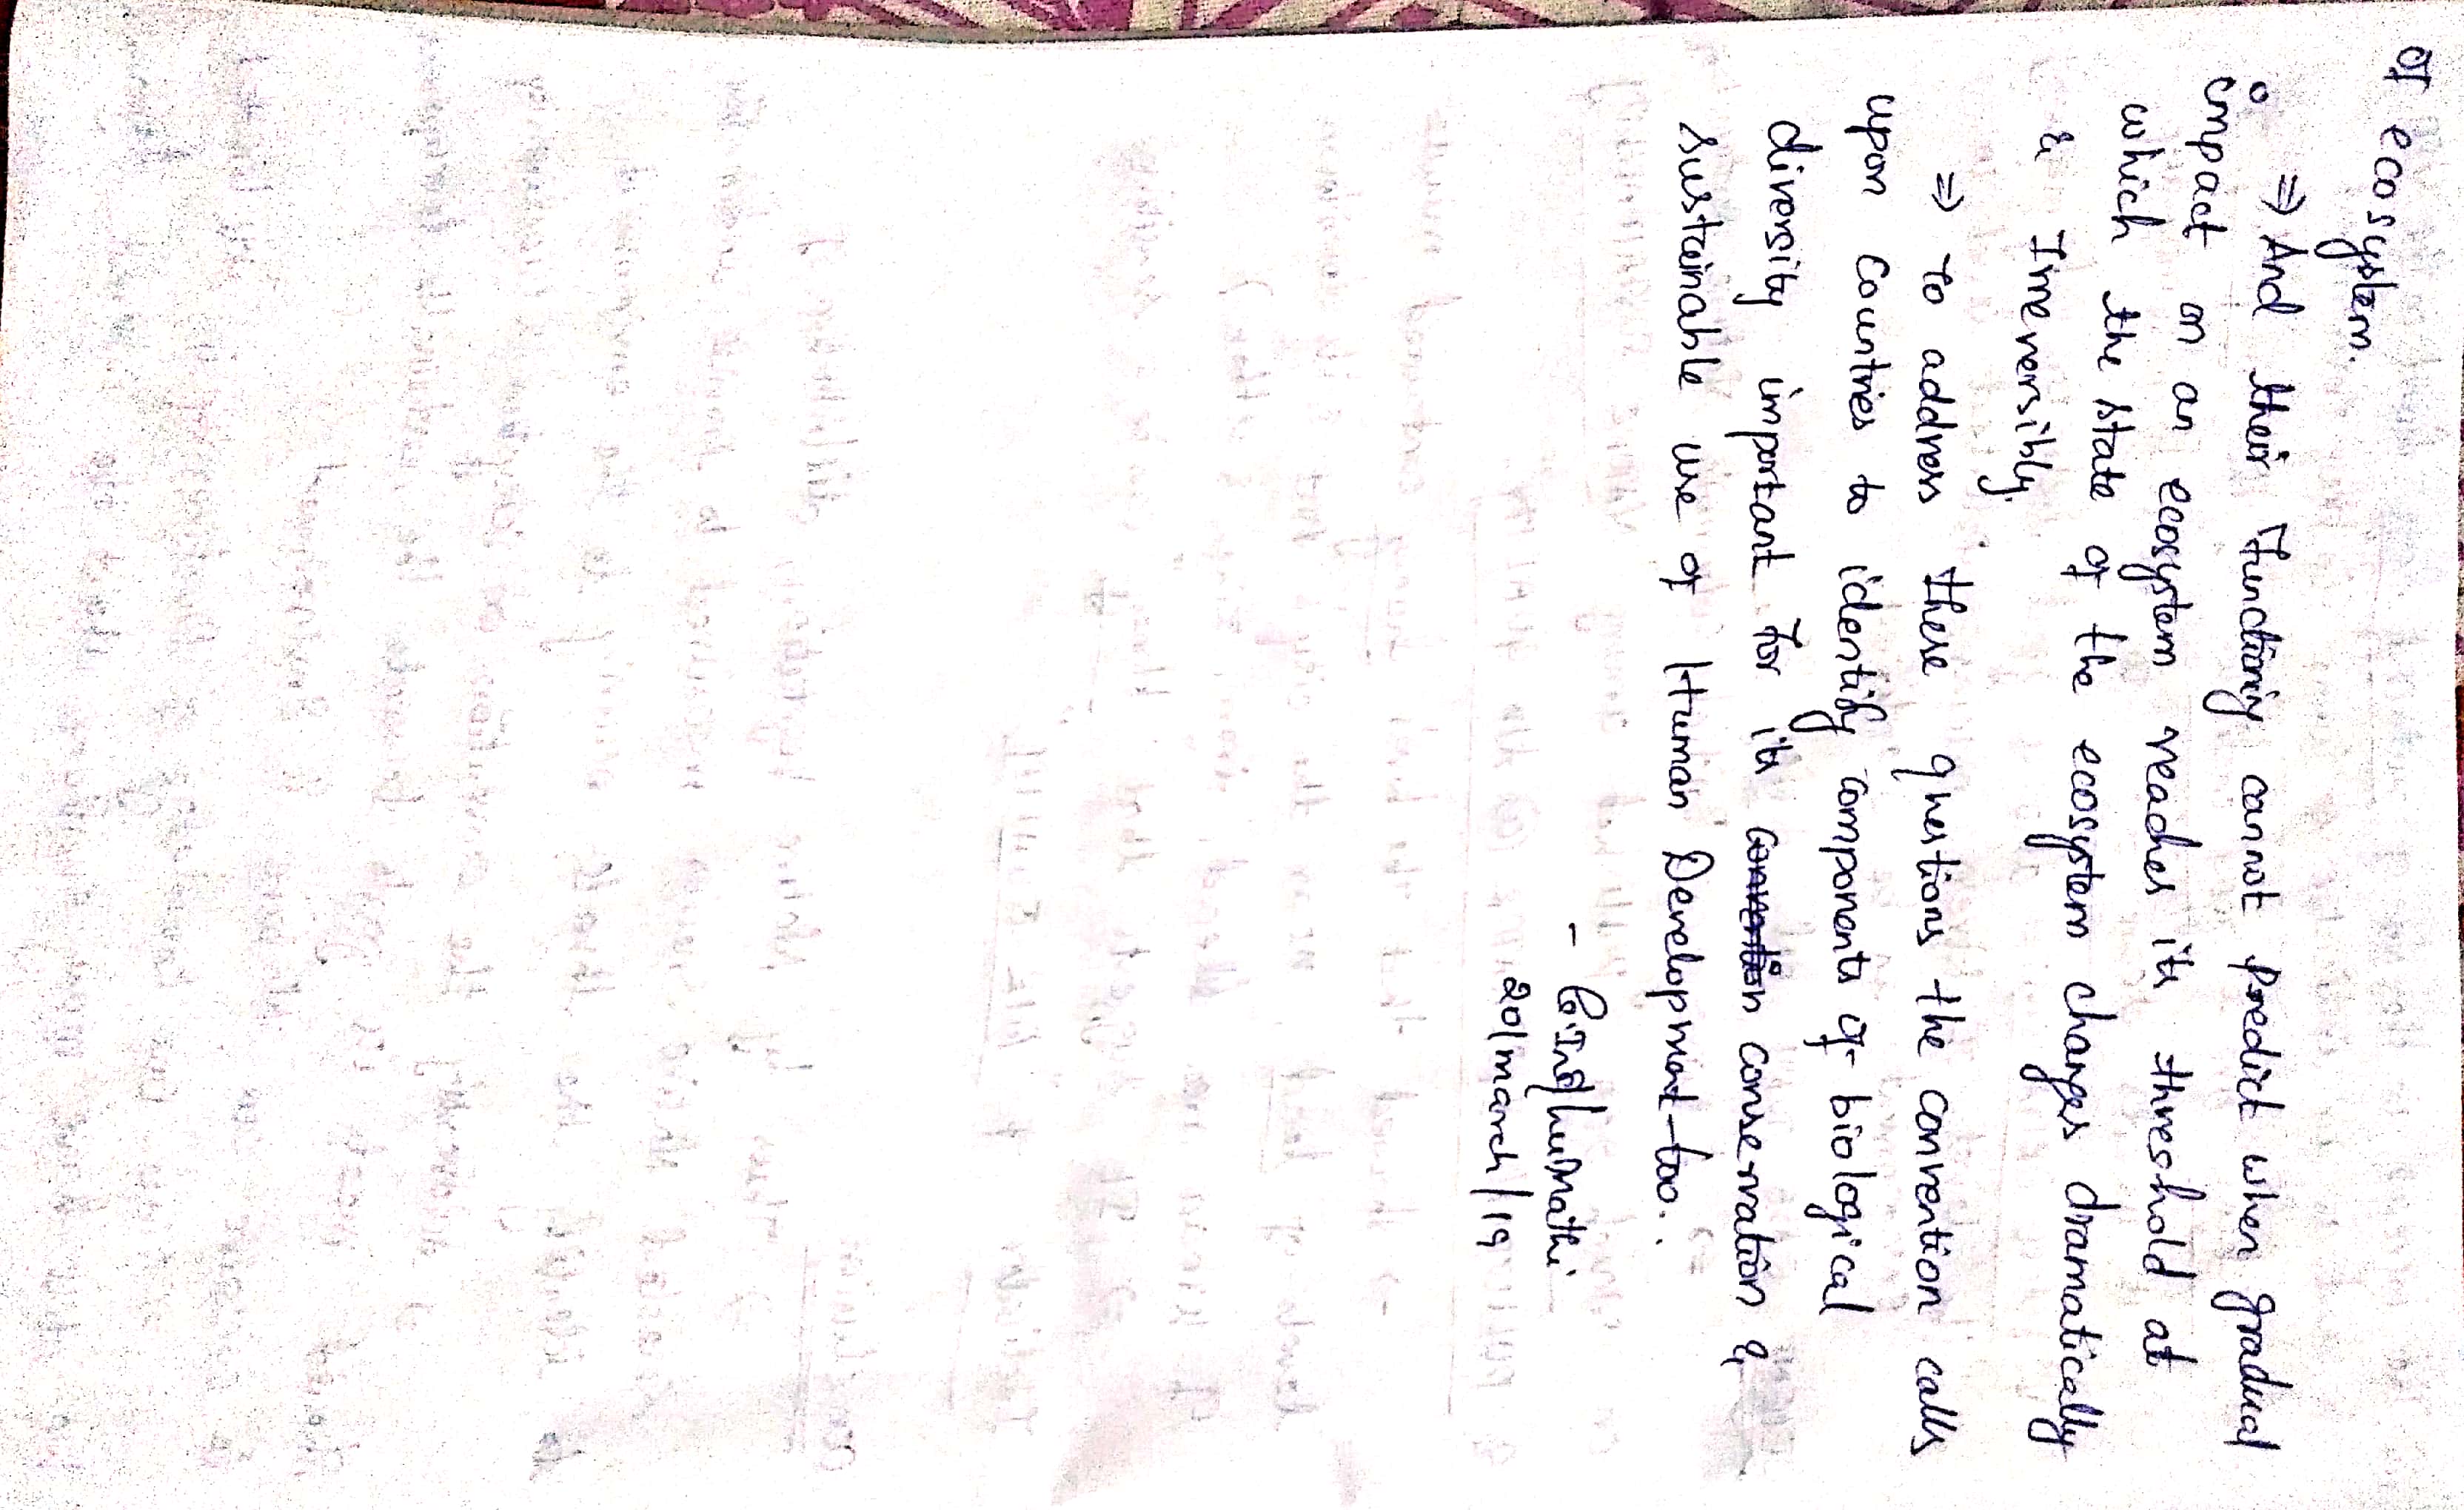 of ecosystem.
⇒ And their functioning cannot predict when gradual
impact on an ecosystem reaches its threshold at
which the state of the ecosystem changes dramatically
& Irreversibly.
⇒ to address these questions the convention calls
upon Countries to identify components of biological
diversity important for its convention conservation &
sustainable use of Human Development too.
20/march/19